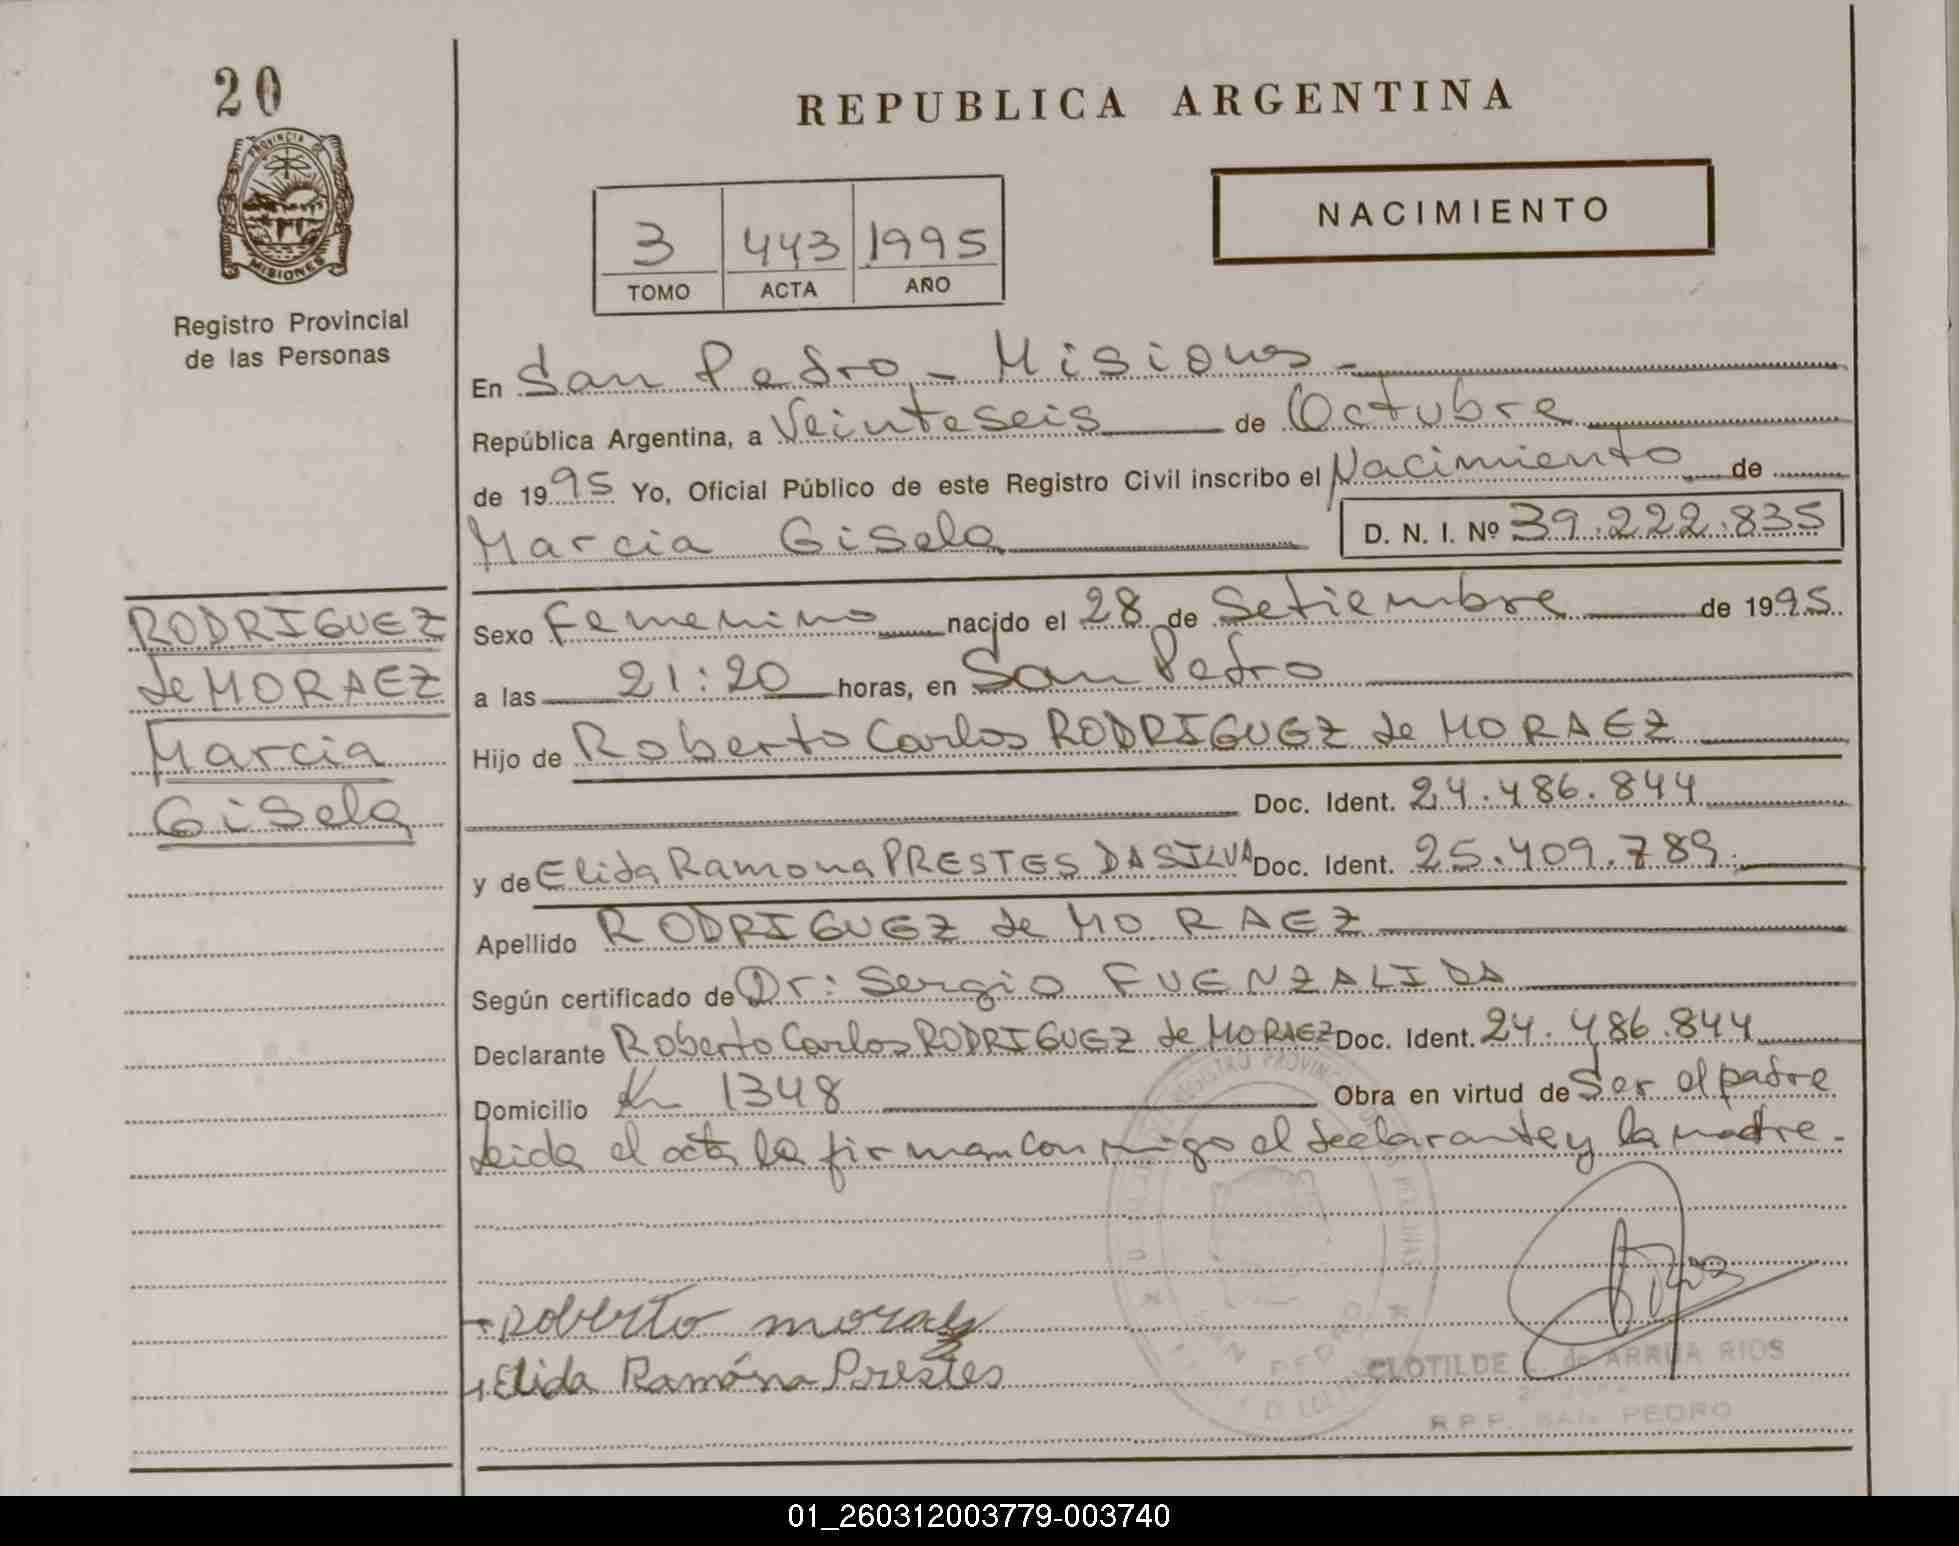 20
PROVINCIA DE
MISIONES
Registro Provincial
de las Personas
REPUBLICA ARGENTINA
3 443 1995
TOMO ACTA AÑO
NACIMIENTO
En San Pedro - Misiones -
República Argentina, a Veinteseis de Octubre
de 1995 Yo, Oficial Público de este Registro Civil inscribo el Nacimiento de
Marcia Gisela D. N. I. Nº 39.222.835
RODRIGUEZ
de MORAEZ
Marcia
Gisela
Sexo Femenino nacido el 28 de Setiembre de 1995
a las 21:20 horas, en San Pedro
Hijo de Roberto Carlos RODRIGUEZ de MORAEZ
Doc. Ident. 24.486.844
y de Elida Ramona PRESTES DA SILVA Doc. Ident. 25.409.789
Apellido RODRIGUEZ de MORAEZ
Según certificado de Dr: Sergio FUENZALIDA
Declarante Roberto Carlos RODRIGUEZ de MORAEZ Doc. Ident. 24.486.844
Domicilio Km 1348 Obra en virtud de Ser el padre
Leida el acta la firman con migo el declarante y la madre.
Roberto moraez
Elida Ramóna Prestes
CLOTILDE de ARRUA RIOS
R.P.P. SAN PEDRO
01_260312003779-003740